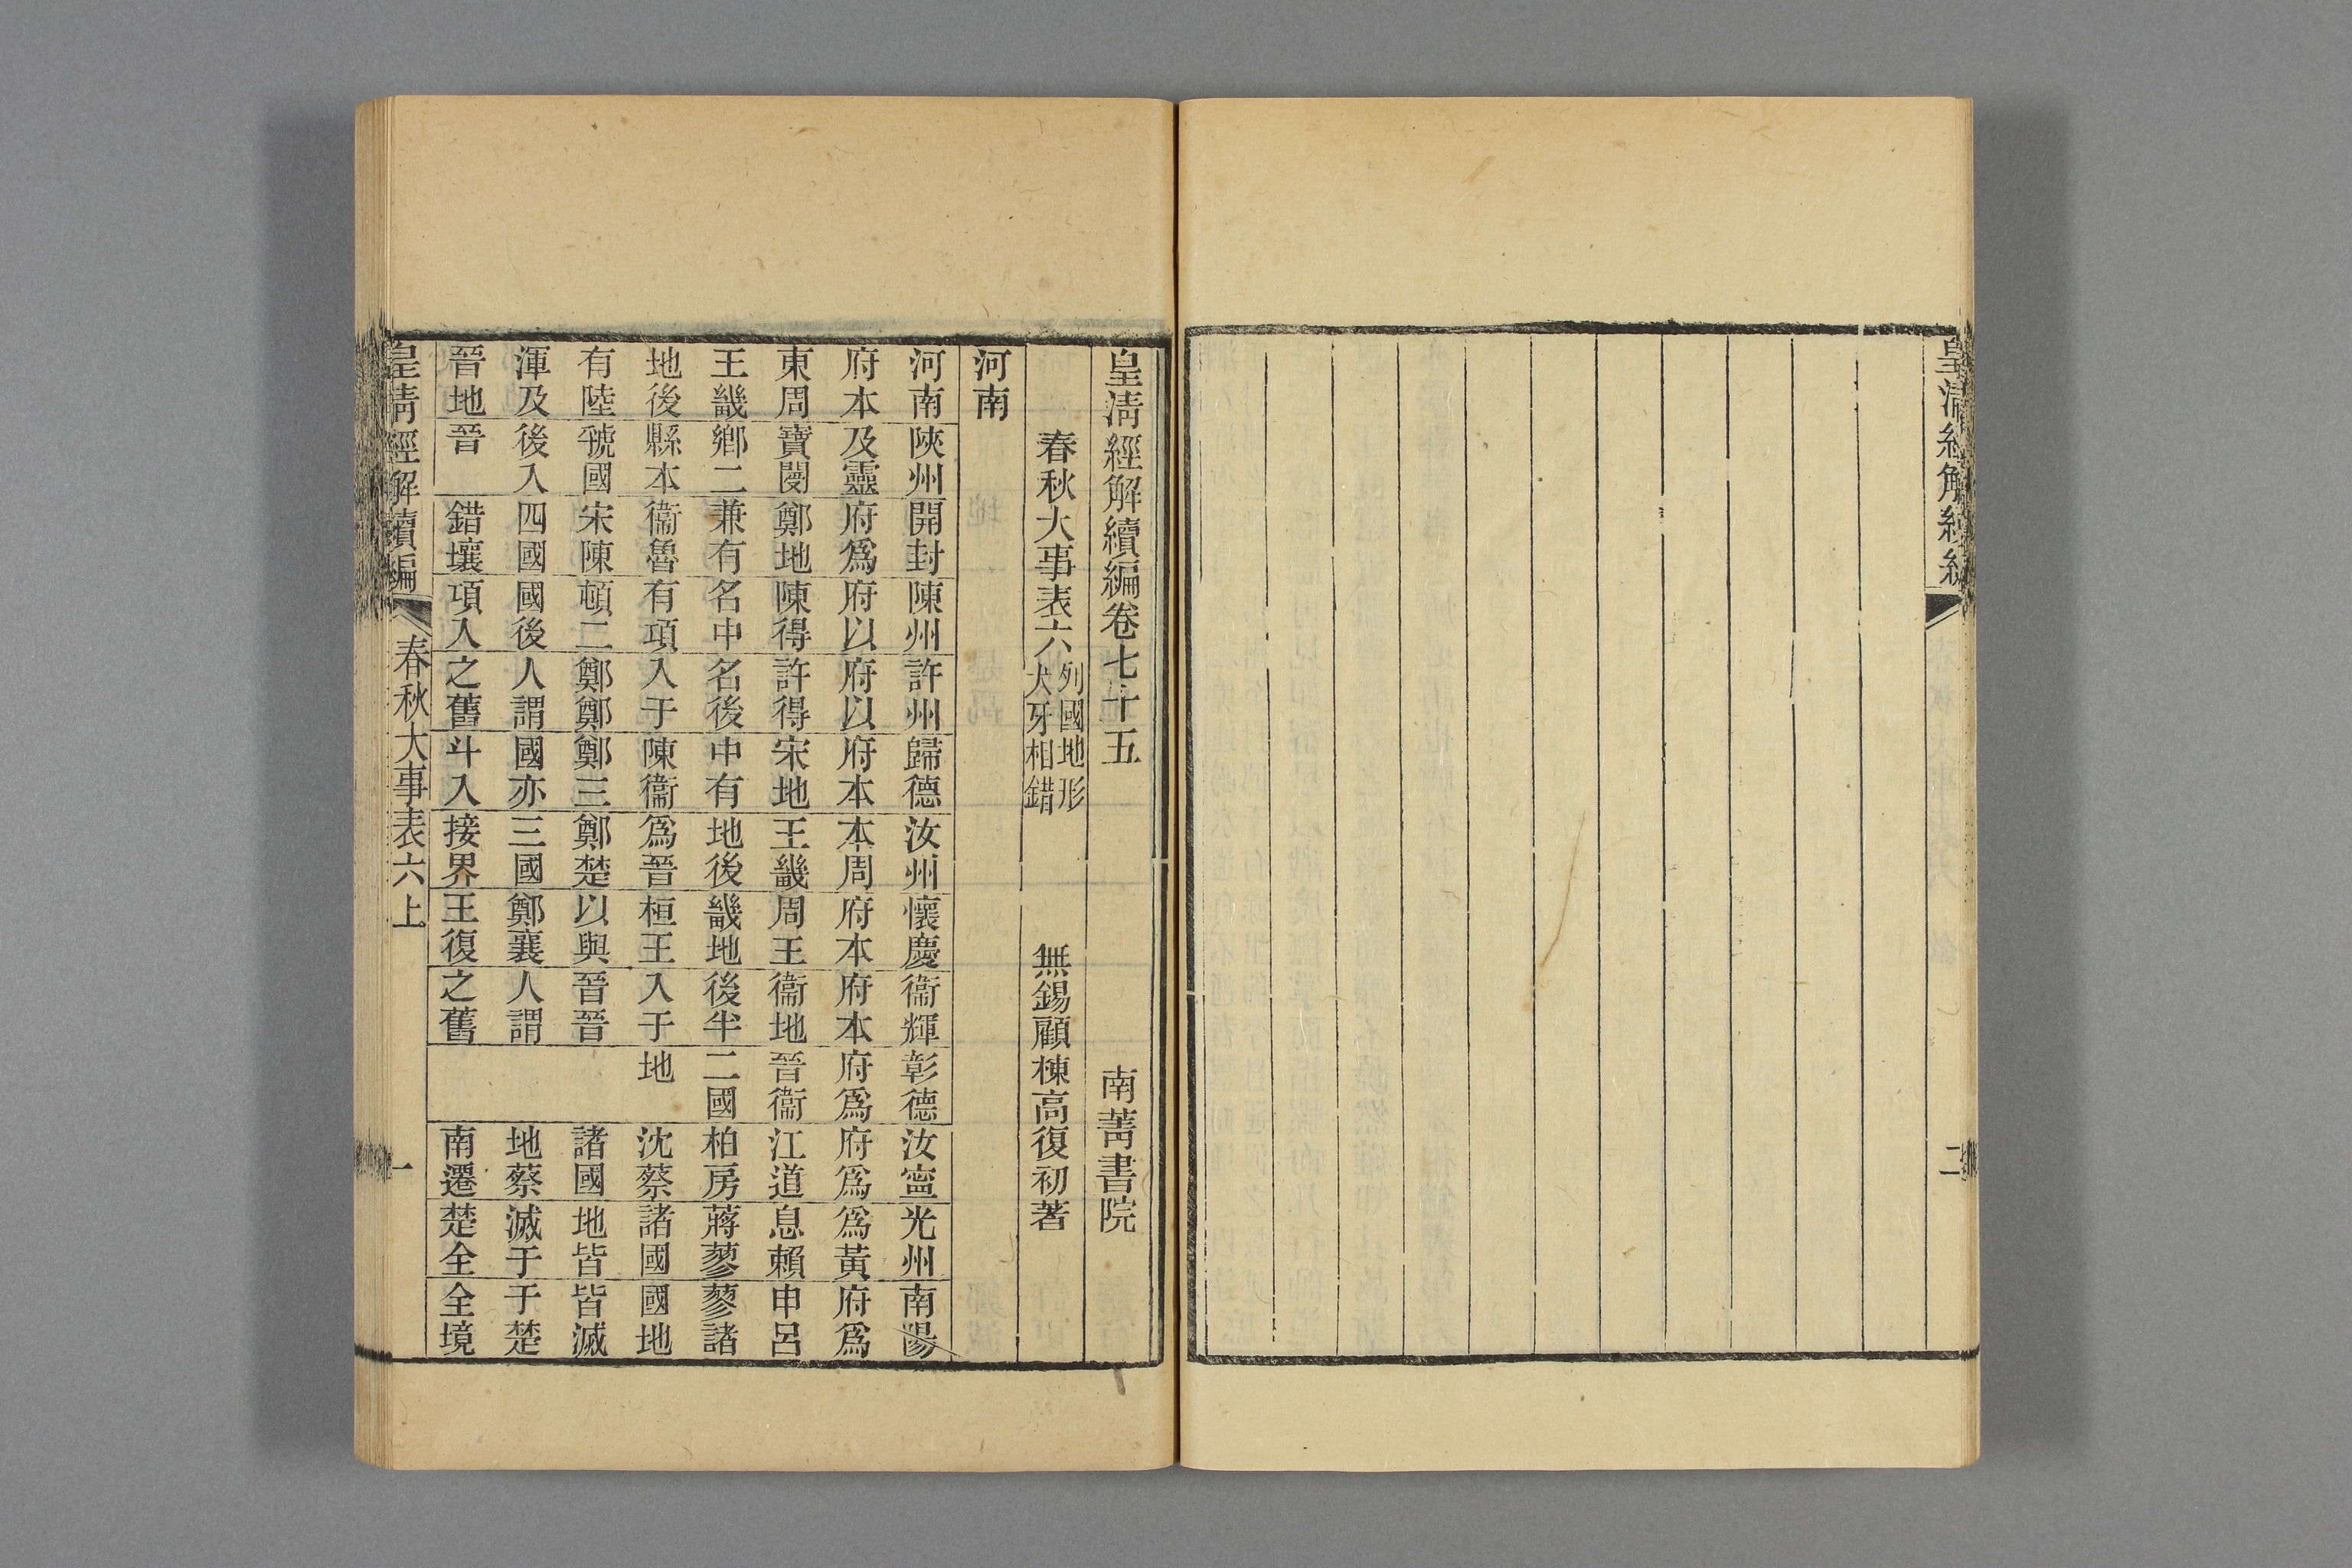 皇清經解續編
二
皇清經解續編卷七十五 南菁書院
春秋大事表六 列國地形 犬牙相錯 無錫顧棟高復初著
河南
河南 陝州 開封 陳州 許州 歸德 汝州 懷慶 衞輝 彰德 汝寧 光州 南陽
府本 及靈 府爲 府以 府以 府本 本周 府本 府本 府爲 府爲 爲黃 府爲
東周 寶閿 鄭地 陳得 許得 宋地 王畿 周王 衞地 晉衞 江道 息賴 申呂
王畿 鄉二 兼有 名中 名後 中有 地後 畿地 後半 二國 柏房 蔣蓼 蓼諸
地後 縣本 衞魯 有項 入于 陳衞 爲晉 桓王 入于 地 沈蔡 諸國 國地
有陸 虢國 宋陳 頓二 鄭鄭 鄭三 鄭楚 以與 晉晉 諸國 地皆 皆滅
渾及 後入 四國 國後 人謂 國亦 三國 鄭襄 人謂 地蔡 滅于 于楚
晉地 晉 錯壤 項入 之舊 斗入 接界 王復 之舊 南遷 楚全 全境
皇清經解續編 春秋大事表六上 一